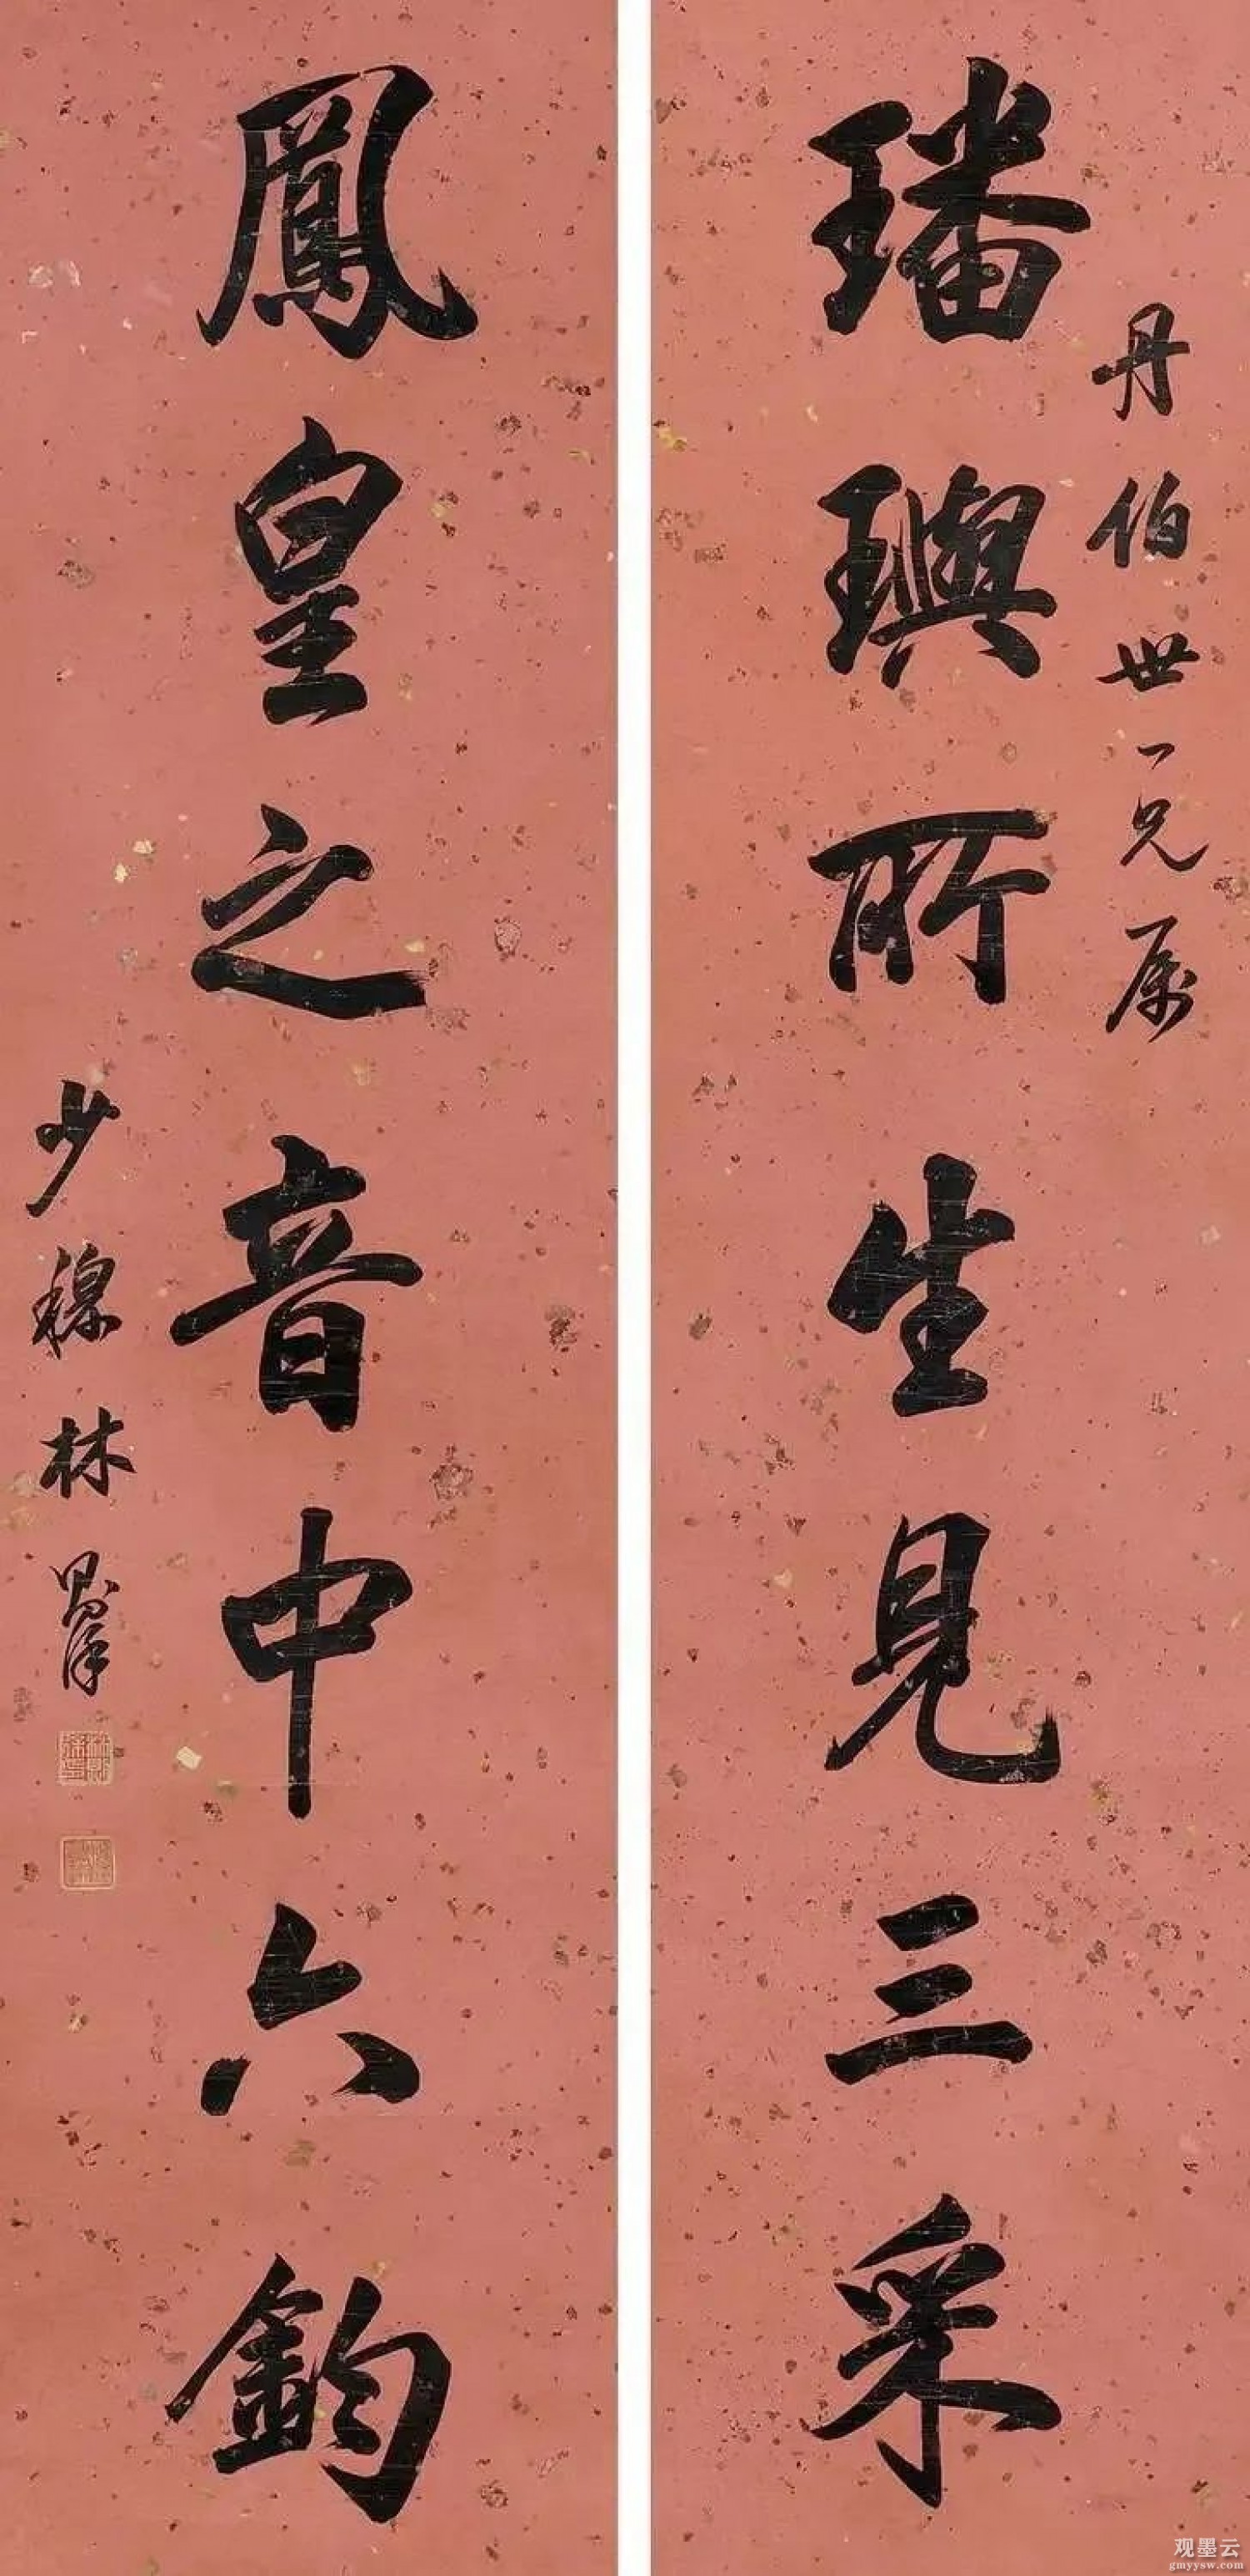 丹伯世一兄属
璠璵所生見三采
鳳皇之音中六鈞
少穆林則徐
观墨云
gmyysw.com